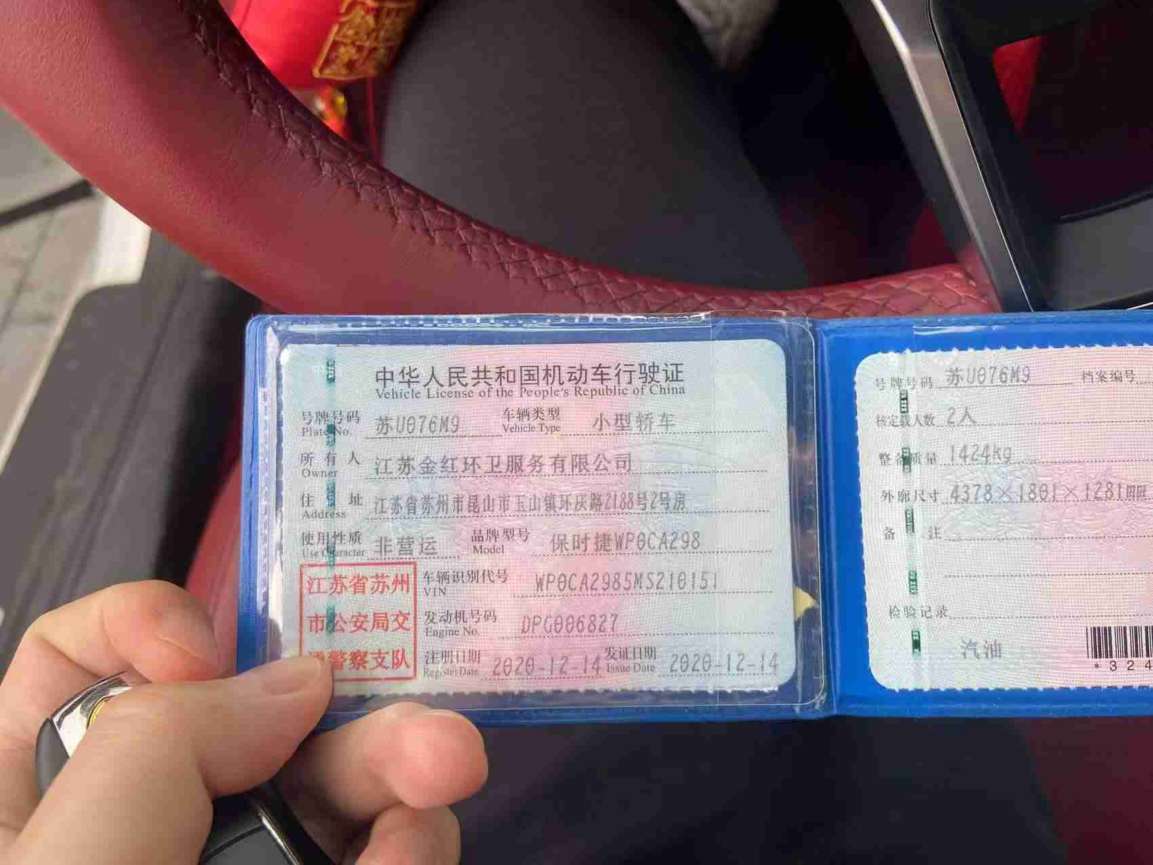 中华人民共和国机动车行驶证
Vehicle License of the People's Republic of China
号牌号码 苏U076M9 车辆类型 小型轿车
Plate No. Vehicle Type
所有人 江苏金红环卫服务有限公司
Owner
住址 江苏省苏州市昆山市玉山镇环庆路2188号2号房
Address
使用性质 非营运 品牌型号 保时捷WP0CA298
Use Character Model
江苏省苏州
市公安局交
警察支队
车辆识别代号 WP0CA2985MS210151
VIN
发动机号码 DPG006827
Engine No.
注册日期 2020-12-14 发证日期 2020-12-14
Register Date Issue Date
号牌号码 苏U076M9 档案编号
核定载人数 2人
整备质量 1424kg
外廓尺寸 4378×1801×1281mm
备注
检验记录
汽油
*324